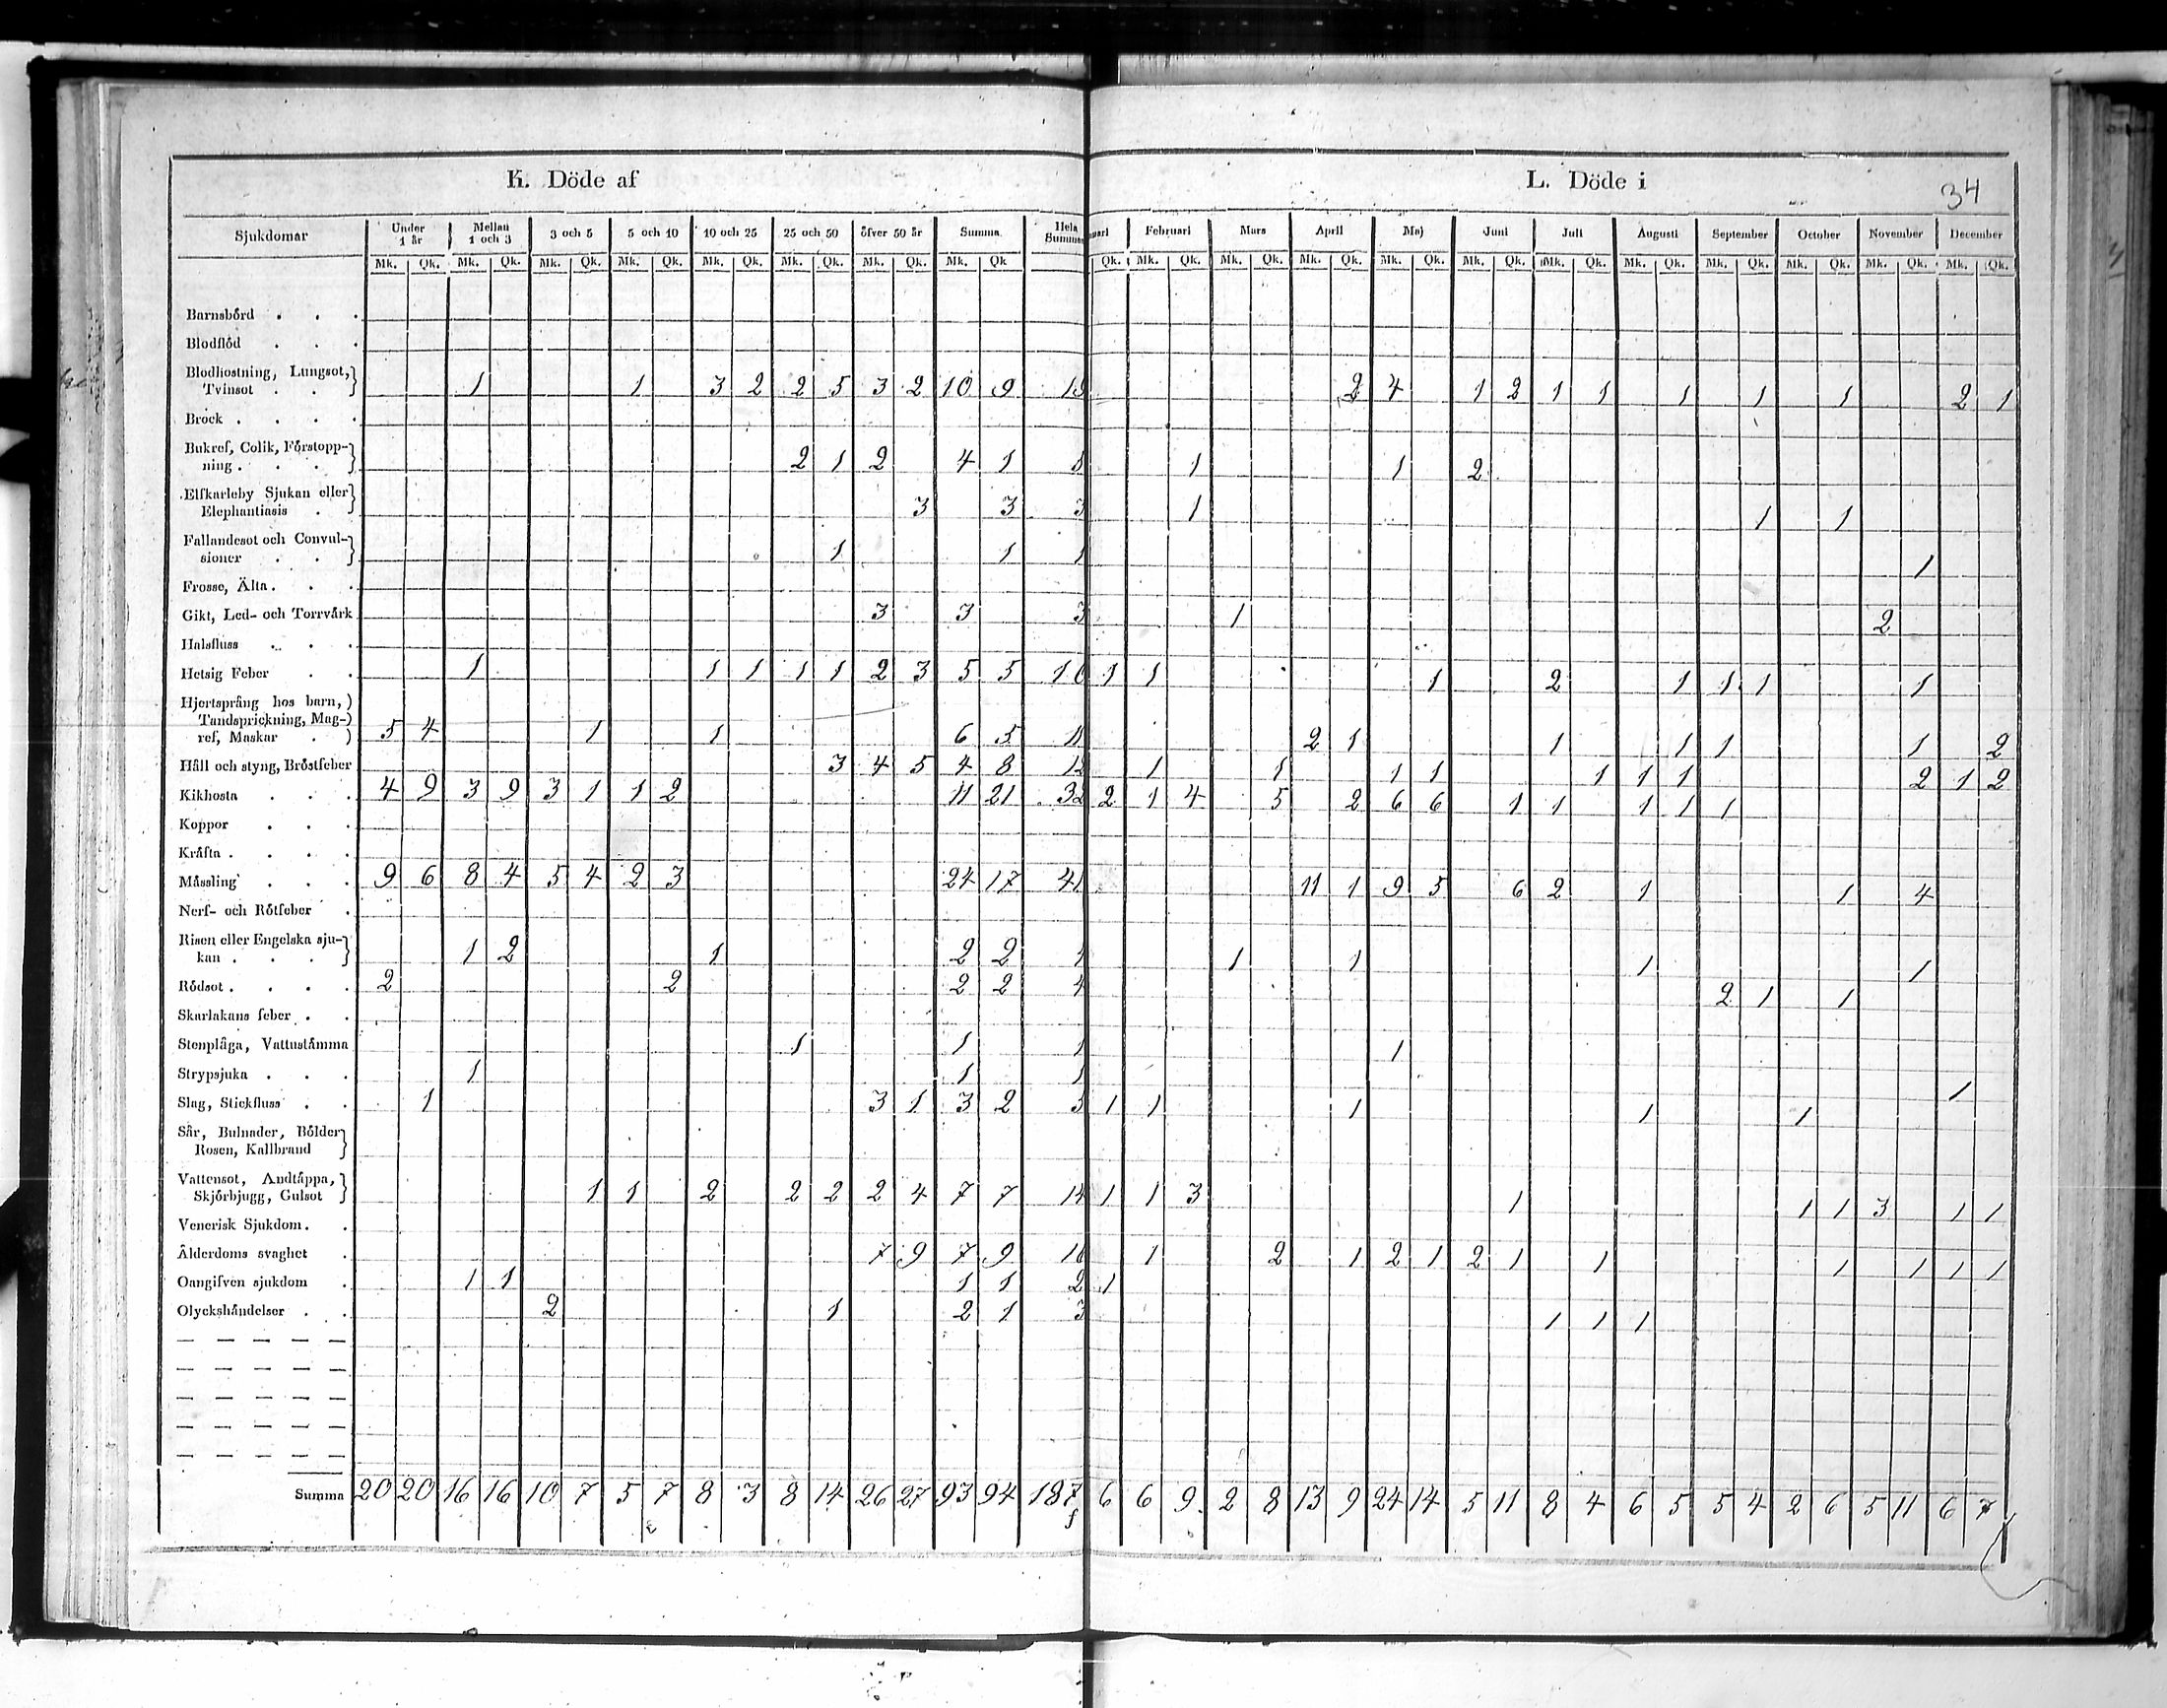 K. Döde af
L. Döde i
34
Sjukdomar Under 1 år Mellan 1 och 3 3 och 5 5 och 10 10 och 25 25 och 50 öfver 50 år Summa Hela Summa
uari Februari Mars April Maj Juni Juli Augusti September October November December
Mk. Qk. Mk. Qk. Mk. Qk. Mk. Qk. Mk. Qk. Mk. Qk. Mk. Qk. Mk. Qk
Qk. Mk. Qk. Mk. Qk. Mk. Qk. Mk. Qk. Mk. Qk. Mk. Qk. Mk. Qk. Mk. Qk. Mk. Qk. Mk. Qk. Mk. Qk.
Barnsbörd . . .
Blodflöd . . .
Blodhostning, Lungsot,
Tvinsot . . 1 1 3 2 2 5 3 2 10 9 19 2 4 1 2 1 1 1 1 1 2 1
Bröck . . . .
Bukref, Colik, Förstopp-
ning . . . 2 1 2 4 1 1 1 2
Elfkarleby Sjukan eller
Elephantiasis . 3 3 3 1 1 1
Fallandesot och Convul-
sioner . . 1 1 1 1
Frosse, Älta . . .
Gikt, Led- och Torrvärk 3 3 3 1 2
Halsfluss . . .
Hetsig Feber . . 1 1 1 1 1 2 3 5 5 10 1 1 1 2 1 1 1 1
Hjertsprång hos barn,
Tandsprickning, Mag-
ref, Maskar . 5 4 1 1 6 5 11 2 1 1 1 1 1 2
Håll och styng, Bröstfeber 3 4 5 4 8 12 1 1 1 1 1 1 1 2 1 2
Kikhosta . . . 4 9 3 9 3 1 1 2 11 21 32 2 1 4 5 2 6 6 1 1 1 1 1
Koppor . . .
Kräfta . . . .
Mässling . . . 9 6 8 4 5 4 2 3 24 17 41 11 1 9 5 6 2 1 1 4
Nerf- och Rötfeber .
Risen eller Engelska sju-
kan . . . 1 2 1 2 2 1 1 1 1
Rödsot . . . . 2 2 2 2 4 2 1 1
Skarlakans feber . .
Stenplåga, Vattustämma 1 1 1 1
Strypsjuka . . . 1 1 1 1
Slag, Stickfluss . . 1 3 1 3 2 5 1 1 1 1 1
Sår, Bulnader, Bölder
Rosen, Kallbrand
Vattensot, Andtäppa,
Skjörbjugg, Gulsot 1 1 2 2 2 2 4 7 7 14 1 1 3 1 1 1 3 1 1
Venerisk Sjukdom . .
Ålderdoms svaghet . 7 9 7 9 16 1 2 1 2 1 2 1 1 1 1 1 1
Oangifven sjukdom . 1 1 1 1 2 1
Olyckshändelser . . 2 1 2 1 3 1 1 1
— — — — —
— — — — —
— — — — —
— — — — —
— — — — —
Summa 20 20 16 16 10 7 5 7 8 3 8 14 26 27 93 94 187 6 6 9 2 8 13 9 24 14 5 11 8 4 6 5 5 4 2 6 5 11 6 7